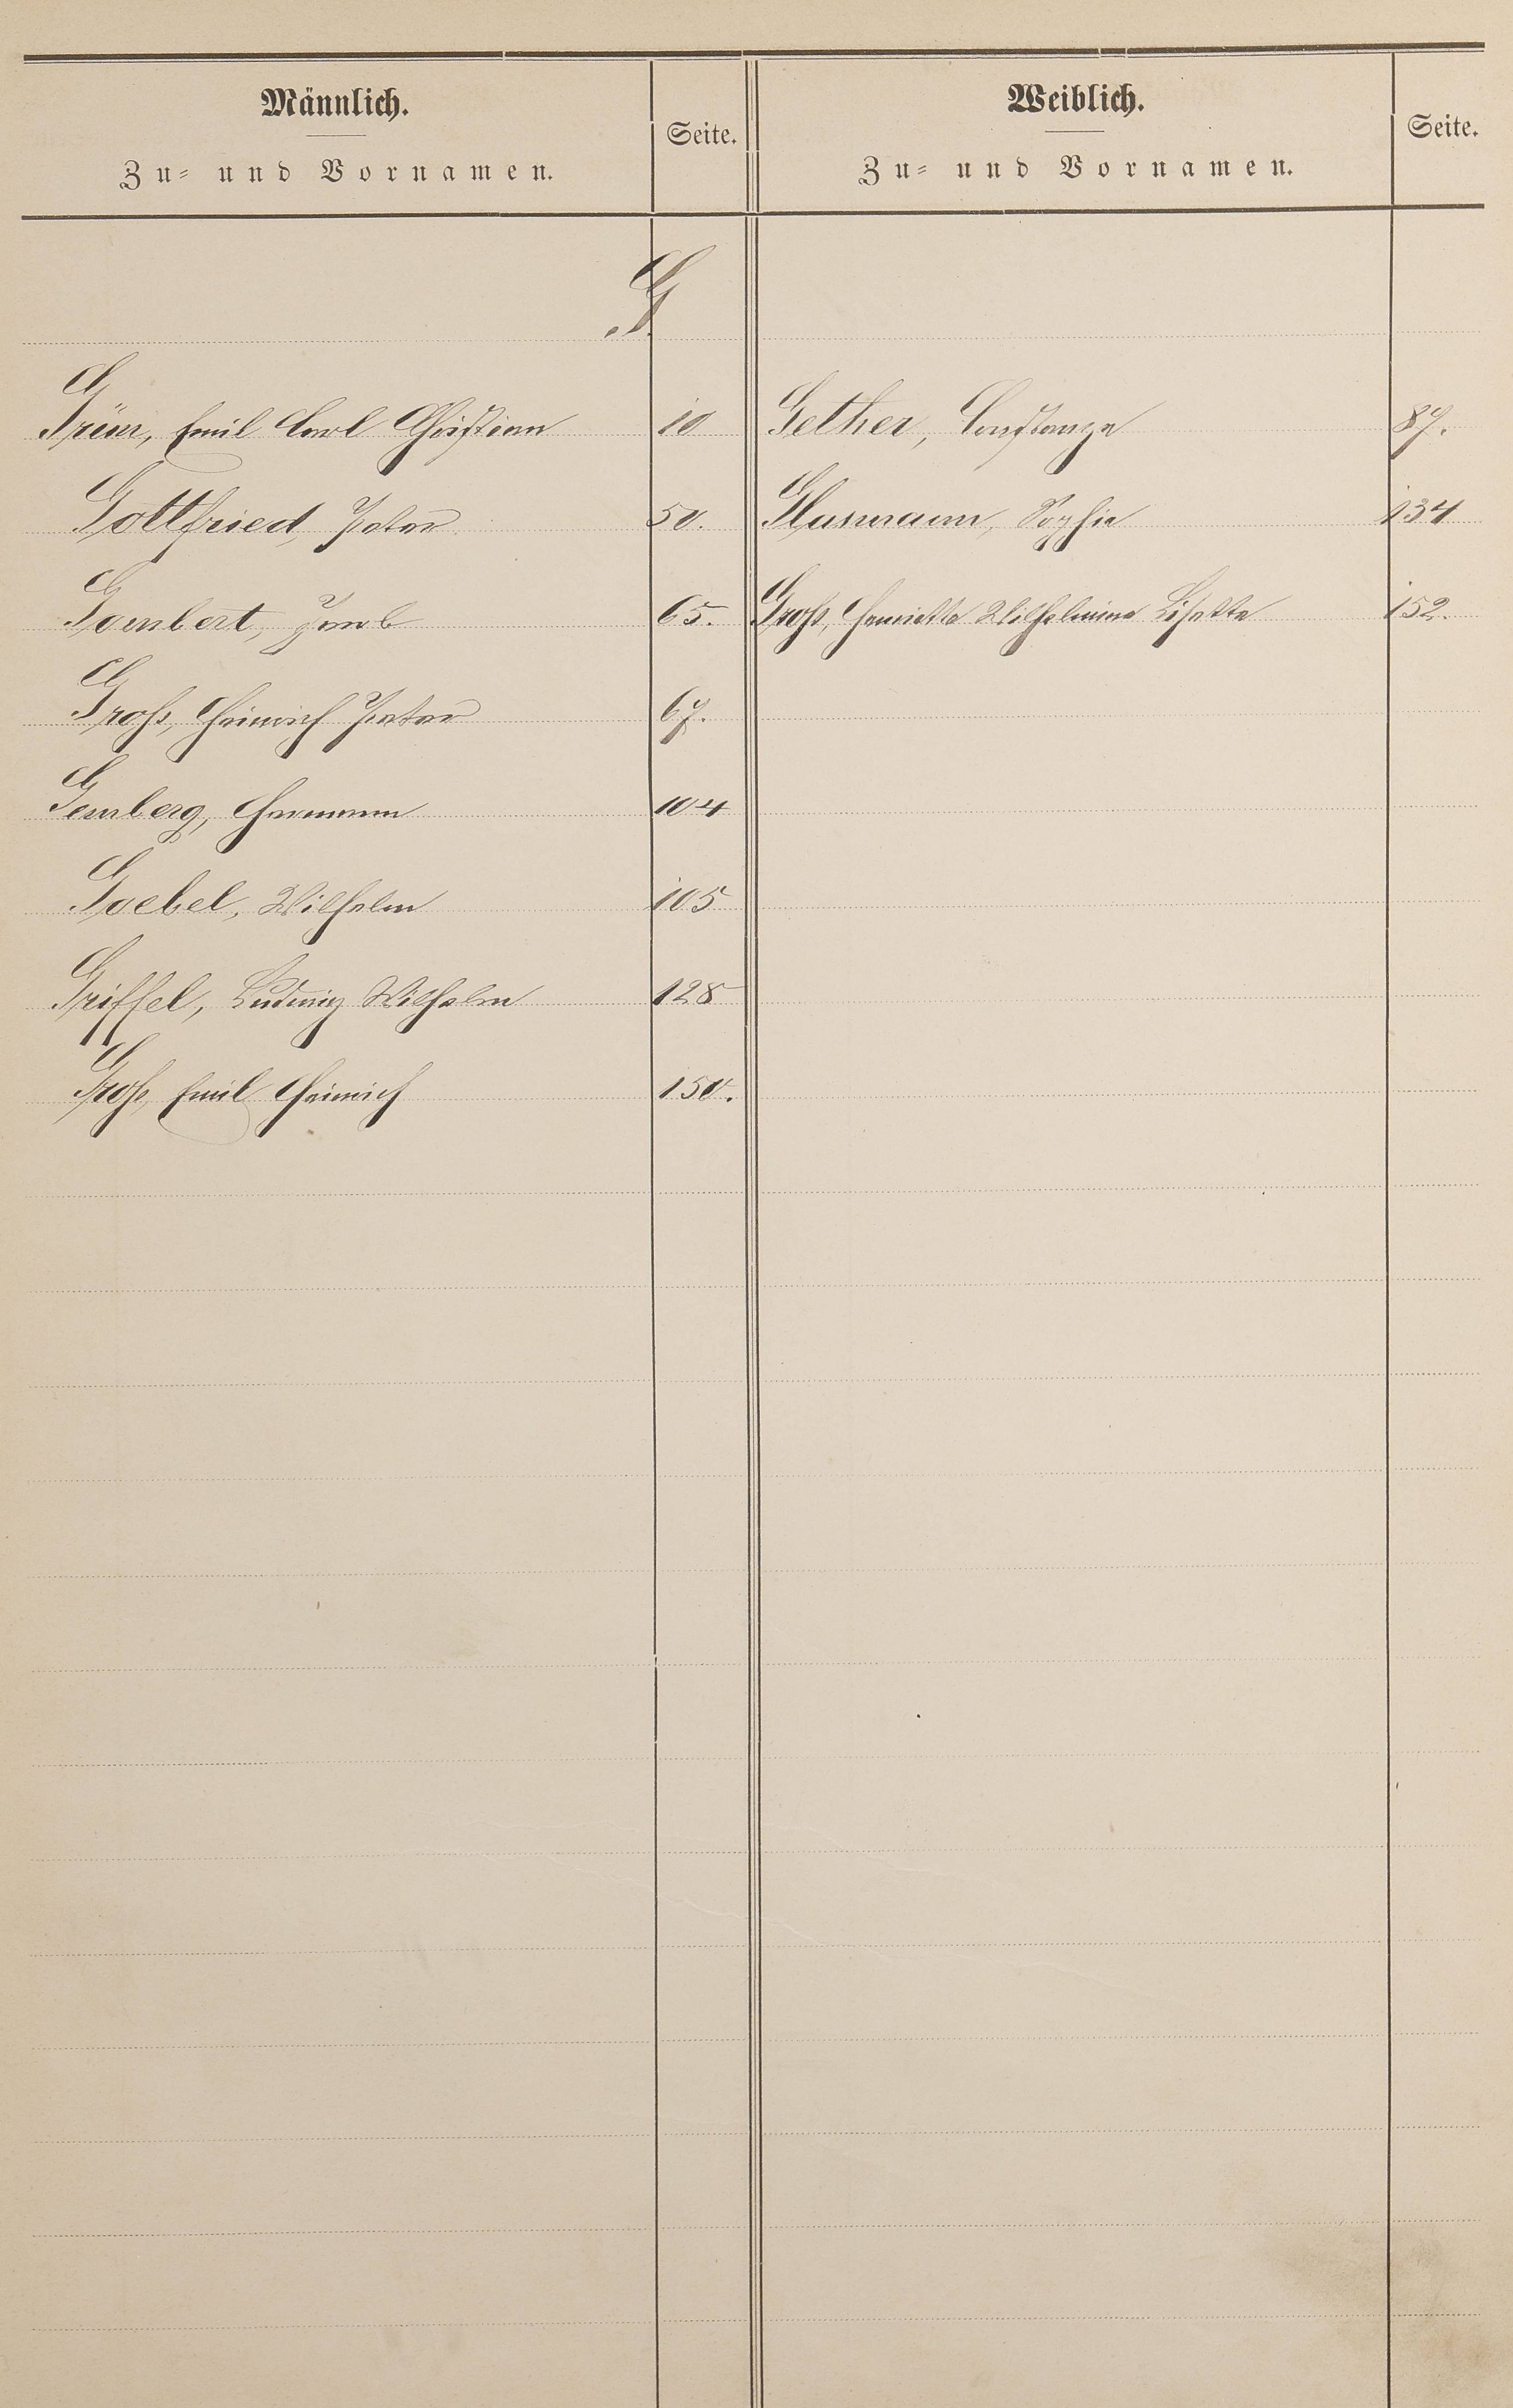 Männlich.
Zu- und Vornamen.
Seite.
Weiblich.
Zu- und Vornamen.
Seite.
G
Grün, Emil Carl Christian 10
Gether, Constanze 87.
Gottfried, Peter 50.
Glasmann, Sophie 134
Gombert, Jacob 65.
Groß, Henriette Wilhelmine Lisette 152.
Groß, Heinrich Peter 67.
Gemberg, Hermann 104
Goebel, Wilhelm 105
Griffel, Ludwig Wilhelm 128
Groß, Emil Heinrich 150.